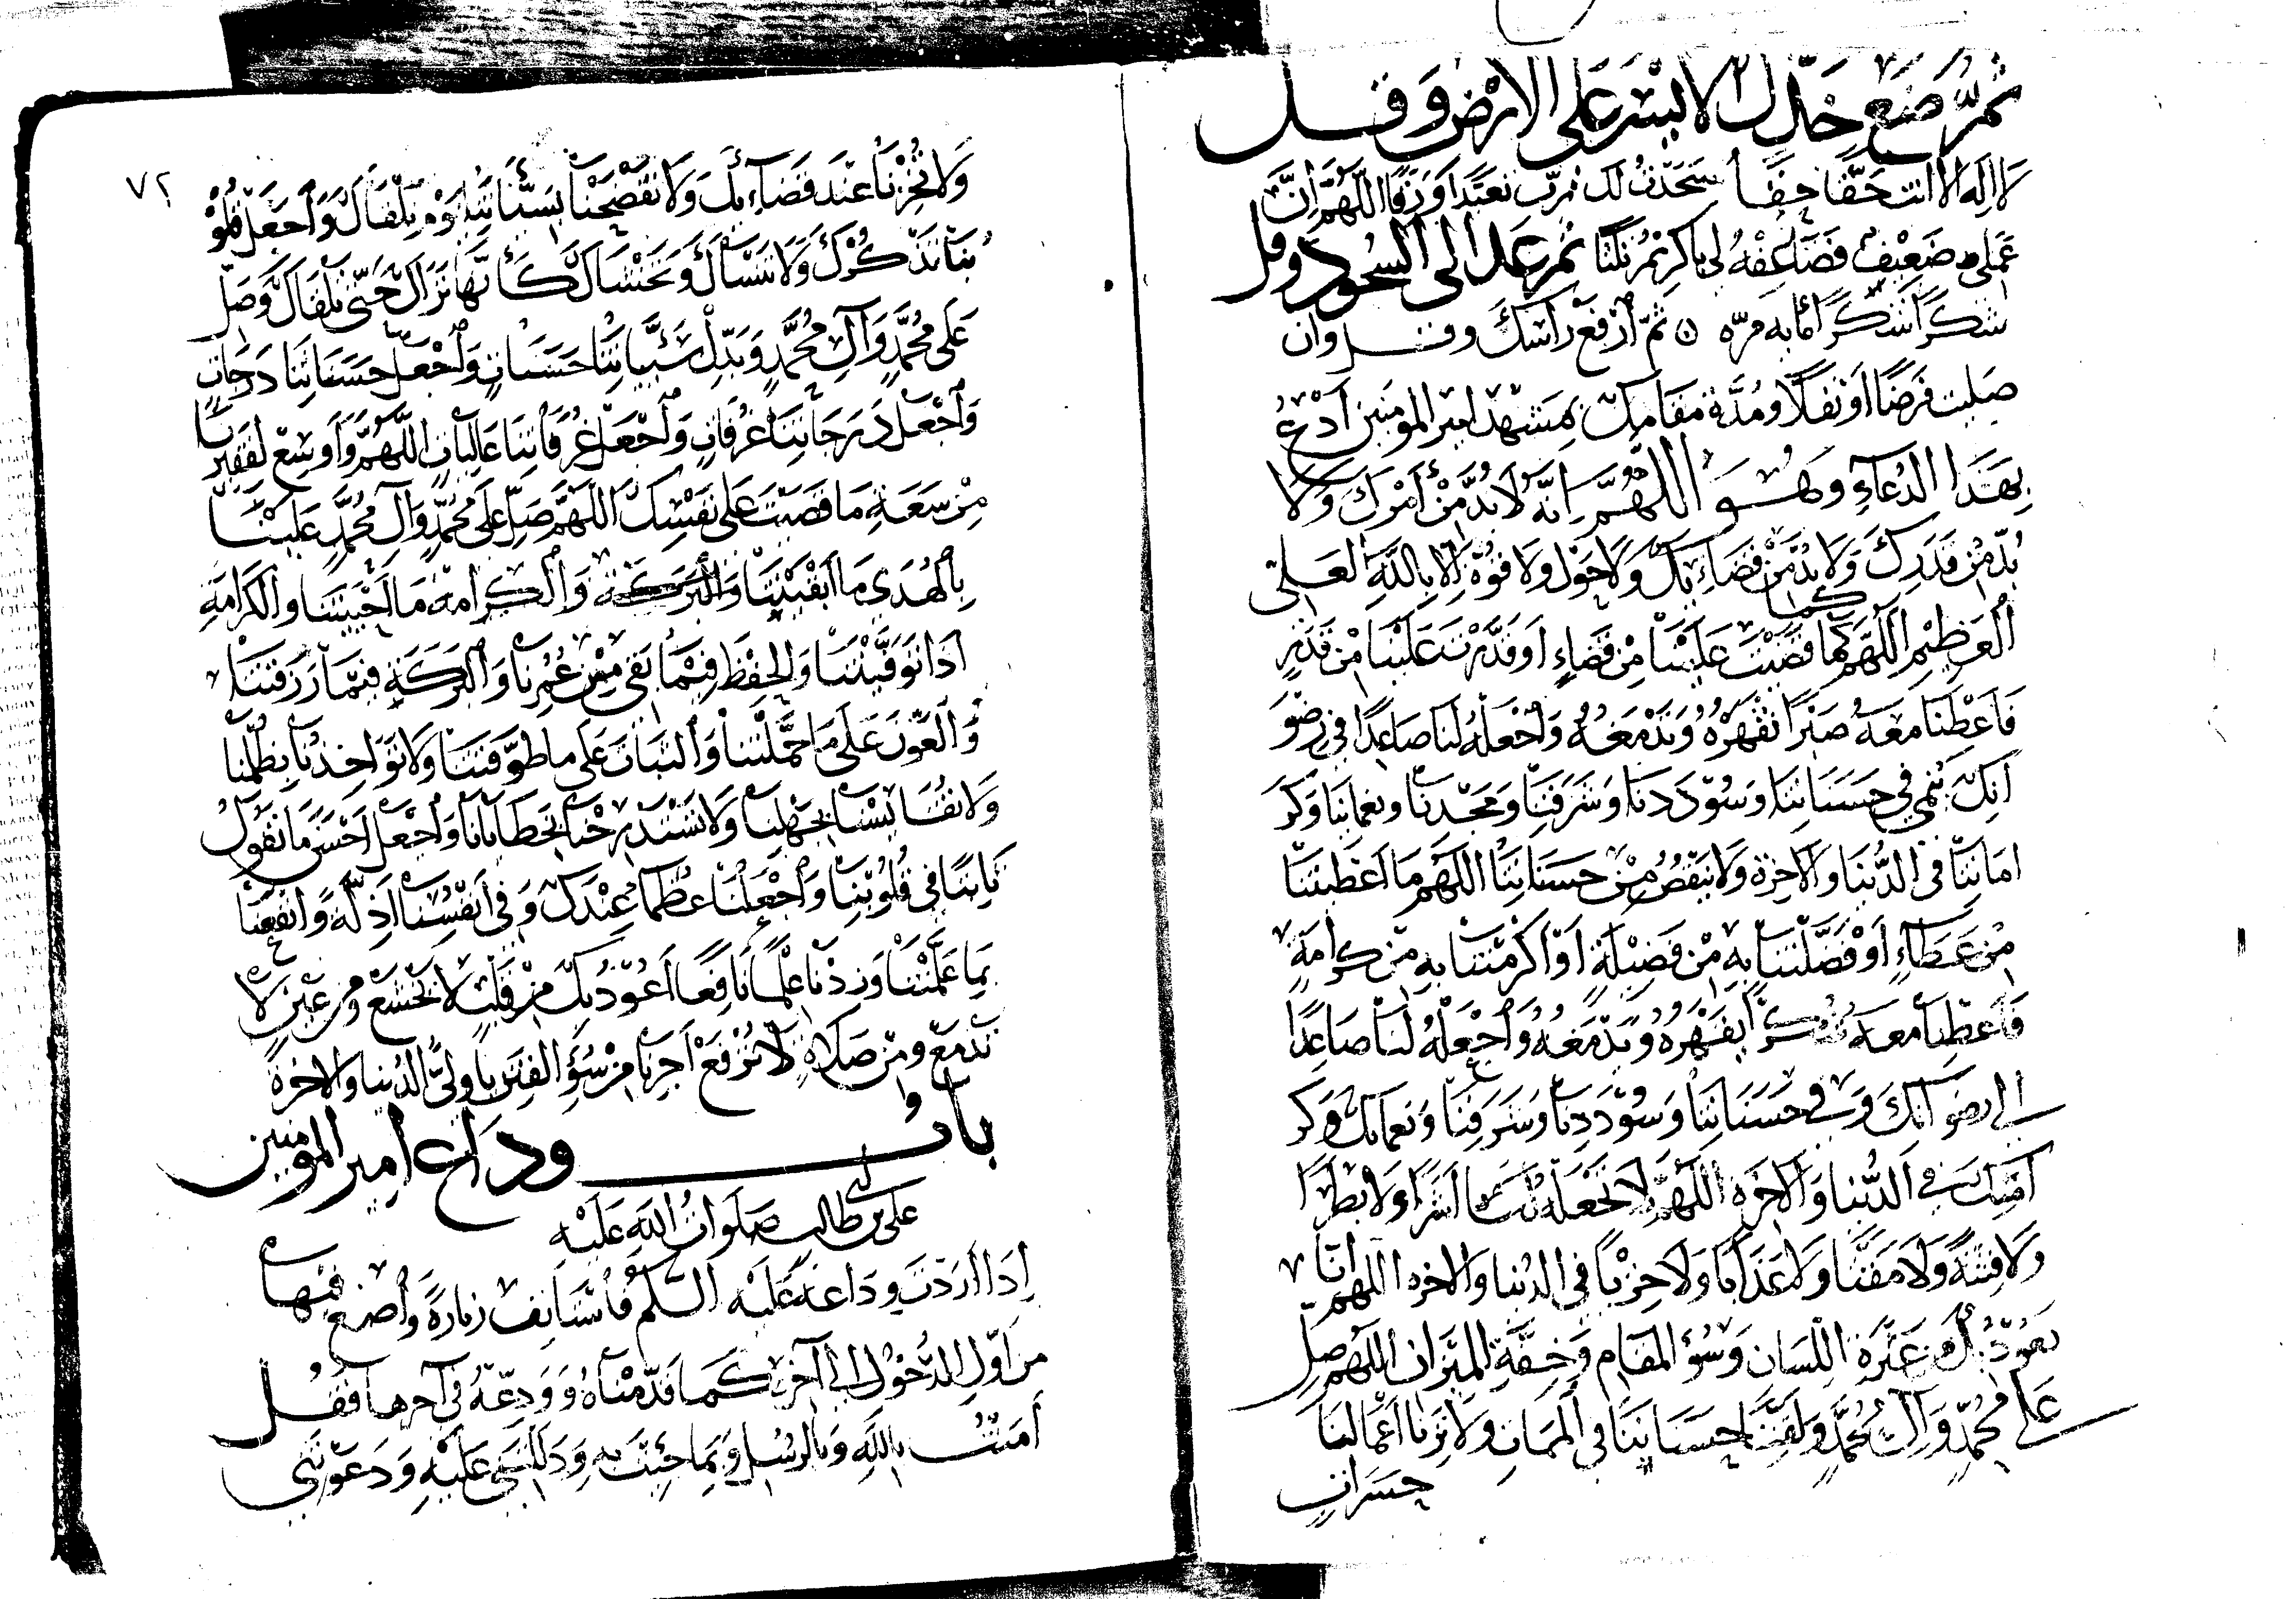 ثم ضع خدك الايسر على الارض وقل
لا اله الا انت حقا حقا سجدت لك يا رب تعبدا ورقا اللهم ان
عملي ضعيف فضاعفه لي يا كريم ثم عد الى السجود وقل
شكرا شكرا مايه مره ثم ارفع راسك وقل وان
صليت فرضا او نفلا ومدة مقامك بمشهد امير المومنين ادع
بهذا الدعاء وهو اللهم انه لا بد من امرك ولا
بد من قدرك ولا بد من قضائك ولا حول ولا قوة الا بالله العلي
العظيم اللهم كما قضيت علينا من قضاء او قدرت علينا من قدر
فاعطنا معه صبرا يقهره ويدمغه واجعله لنا صاعدا في رضو
انك ينمي في حسناتنا وسوددنا وشرفنا ومجدنا ونعمائنا وكر
امتنا في الدنيا والاخرة ولا ينقص من حسناتنا اللهم ما اعطيتنا
من عطاء او فضلتنا به من فضيلة او اكرمتنا به من كرامة
فاعطنا معه شكرا يقهره ويدمغه واجعله لنا صاعدا
الى رضوانك وفي حسناتنا وسوددنا وشرفنا ونعمائك وكر
امتك في الدنيا والاخرة اللهم لا تجعله لنا اشرا ولا بطرا
ولا فتنة ولا مقتا ولا عذابا ولا خزيا في الدنيا والاخره اللهم انا
نعوذ بك من عثرة اللسان وسوء المقام وخفة الميزان اللهم صل
على محمد وال محمد ولقنا حسناتنا في الممات ولا ترنا اعمالنا
حسرات
٧٢
ولا تخزنا عند قضائك ولا تفضحنا بسيئاتنا يوم نلقاك واجعل قلو
بنا تذكرك ولا تنساك وتخشاك كانها تراك حتى تلقاك وصل
على محمد وال محمد وبدل سيئاتنا حسنات واجعل حسناتنا درجات
واجعل درجاتنا غرفات واجعل غرفاتنا عاليات اللهم واوسع لفقيرنا
من سعة ما قضيت على نفسك اللهم صل على محمد وال محمد علينا
بالهدى ما ابقيتنا والكرامة ما احييتنا والكرامة
اذا توفيتنا والحفظ فيما بقي من عمرنا والبركة فيما رزقتنا
والعون على ما حملتنا والثبات على ما طوقتنا ولا تؤاخذنا بظلمنا
ولا تقايسنا بجهلنا ولا تستدرجنا بخطايانا واجعل احسن ما نقول
ثابتا في قلوبنا واجعلنا عظما عندك وفي انفسنا اذلة وانفعنا
بما علمتنا وزدنا علما نافعا اعوذ بك من قلب لا يخشع ومن عين لا
تدمع ومن صلاة لا ترفع اجرنا من سوء الفتن يا ولي الدنيا والاخرة
باب وداع امير المومنين
علي بن ابي طالب صلوات الله عليه
اذا اردت وداعه عليه السلم فاستانف زيارة واصنع فيها
من اول الدخول الى اخرها كما قدمناه وودعه في اخرها فقل
امنت بالله وبالرسل وبما جئت به ودللتني عليه ودعوتني